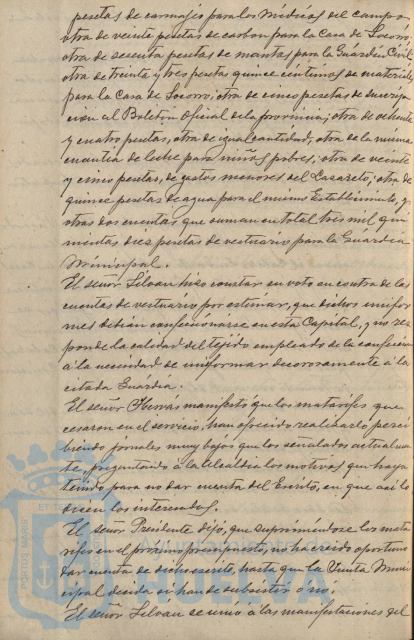 pesetas de carruajes para los Médicos del campo;
otra de veinte pesetas de carbon para la Casa de Socorro;
otra de sesenta pesetas de mantas para la Guardia Civil,
otra de treinta y tres pesetas quince céntimos de material
para la Casa de Socorro; otra de cinco pesetas de suscrip-
cion al Boletin Oficial de la provincia; otra de ochenta
y cuatro pesetas, otra de igual cantidad, otra de la misma
cuantia de leche para niños pobres; otra de veinte
y cinco pesetas, de gastos menores del Lazareto; otra de
quince pesetas de agua para el mismo Establecimto, y
otras dos cuentas que suman en total tres mil qui-
nientas diez pesetas de vestuario para la Guardia
Municipal.
El señor hizo constar su voto en contra de las
cuentas de vestuario por estimar, que dichos unifor-
mes debian confeccionarse en esta Capital, y no res-
ponde la calidad del tejido empleado de la confeccion
á la necesidad de uniformar decorosamente á la
citada Guardia.
El señor manifestó que los matarifes que
cesaron en el servicio, han ofrecido realizarlo perci-
biendo jornales muy bajos que los señalados actualmen-
te, preguntando á la Alcaldia los motivos que haya
tenido para no dar cuenta del Escrito, en que asi lo
dicen los interesados.
El señor Presidente dijo, que suprimiéndose los mata-
rifes en el próximo presupuesto, no ha creido oportuno
dar cuenta de dicho escrito, hasta que la Junta Muni-
cipal decida si han de subsistir o no.
El señor se unió á las manifestaciones del
Ayuntamiento de
HUELVA
PORTUS MARIS
ET TE